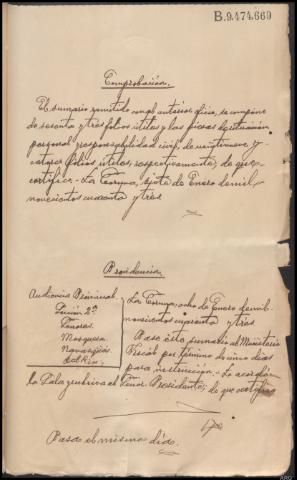 B.9.474.669
Comprobacion.
El sumario remitido con el anterior oficio, se compone
de sesenta y tres folios útiles y las piezas de situación
personal y responsabilidad civil, de veintinueve y
catorce folios útiles, respectivamente; de que
certifico.- La Coruña, siete de Enero de mil
novecientos cuarenta y tres
Providencia.
Audiencia Provincial
La Coruña, ocho de Enero de mil
novecientos cuarenta y tres
Pase este sumario al Ministerio
Fiscal por término de cinco días
para instrucción.- Lo acordó
la Sala y rubrica el Señor Presidente; de que certifico
Pasa el mismo día.